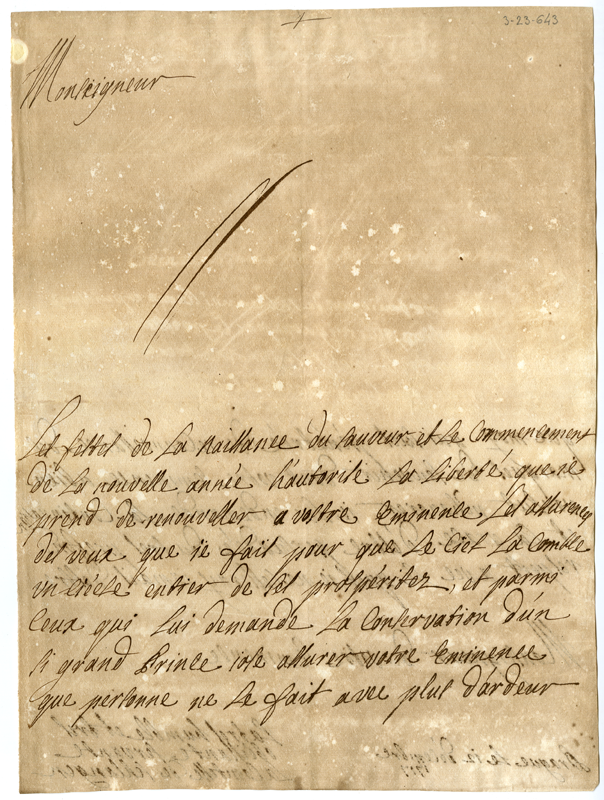 3-23-643
Monseigneur
Les festes de La naissance du sauveur et Le Commencement
de La nouvelle année hautorise La Liberté que ie
prend de renouveller a vostre Eminence Les assurences
des veux que ie fait pour que Le Ciel La Comble
un siécle entier de ses prospéritez, et parmi
Ceux qui Lui demande La Conservation dún
si grand Prince iose assurer votre Eminence
que personne ne Le fait avec plus dárdeur